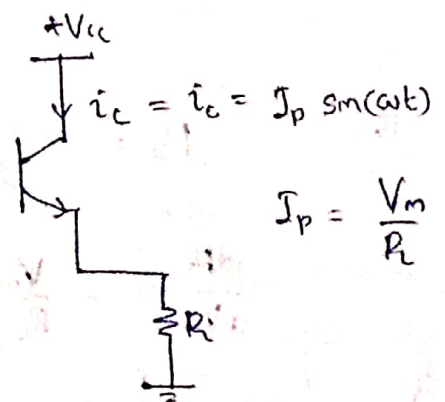 +Vcc
ic = ic = Ip sin(ωt)
Ip = Vm
R
Ri